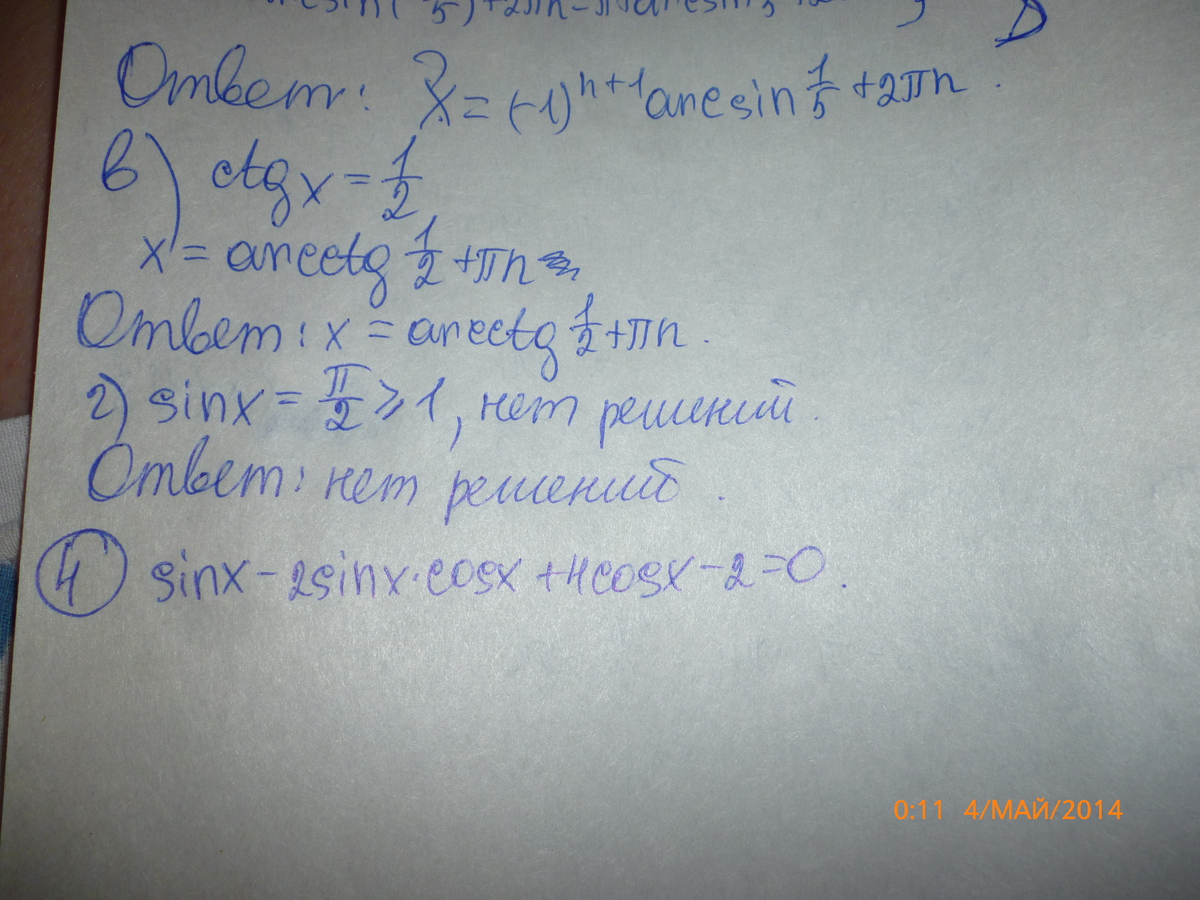 Ответ: x = (-1)^{n+1} arcsin 1/5 + 2πn.
?
в) ctg x = 1/2
x = arcctg 1/2 + πn
Ответ: x = arcctg 1/2 + πn.
г) sinx = π/2 ⩾ 1, нет решений.
Ответ: нет решений.
4 sinx - 2sinx·cosx + 4cosx - 2 = 0.
0:11 4/МАЙ/2014